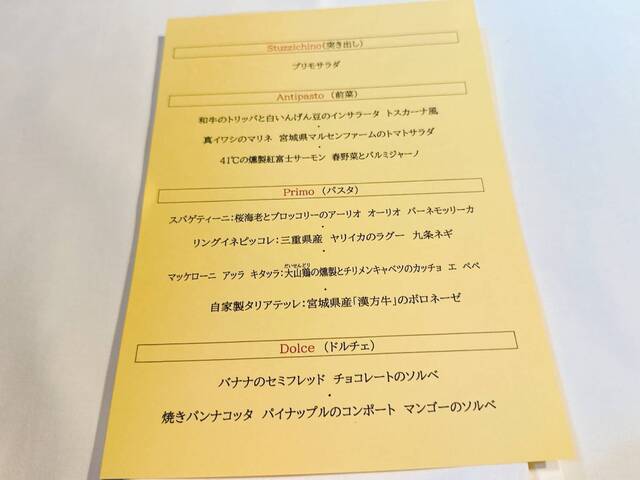 Stuzzichino(突き出し)
プリモサラダ
Antipasto （前菜）
和牛のトリッパと白いんげん豆のインサラータ トスカーナ風
・
真イワシのマリネ 宮城県マルセンファームのトマトサラダ
・
41℃の燻製紅富士サーモン 春野菜とパルミジャーノ
Primo （パスタ）
スパゲティーニ：桜海老とブロッコリーのアーリオ オーリオ パーネモッリーカ
・
リングイネピッコレ：三重県産 ヤリイカのラグー 九条ネギ
・
だいせんどり
マッケローニ アッラ キタッラ：大山鶏の燻製とチリメンキャベツのカッチョ エ ペペ
・
自家製タリアテッレ：宮城県産「漢方牛」のボロネーゼ
Dolce （ドルチェ）
バナナのセミフレッド チョコレートのソルベ
・
焼きパンナコッタ パイナップルのコンポート マンゴーのソルベ